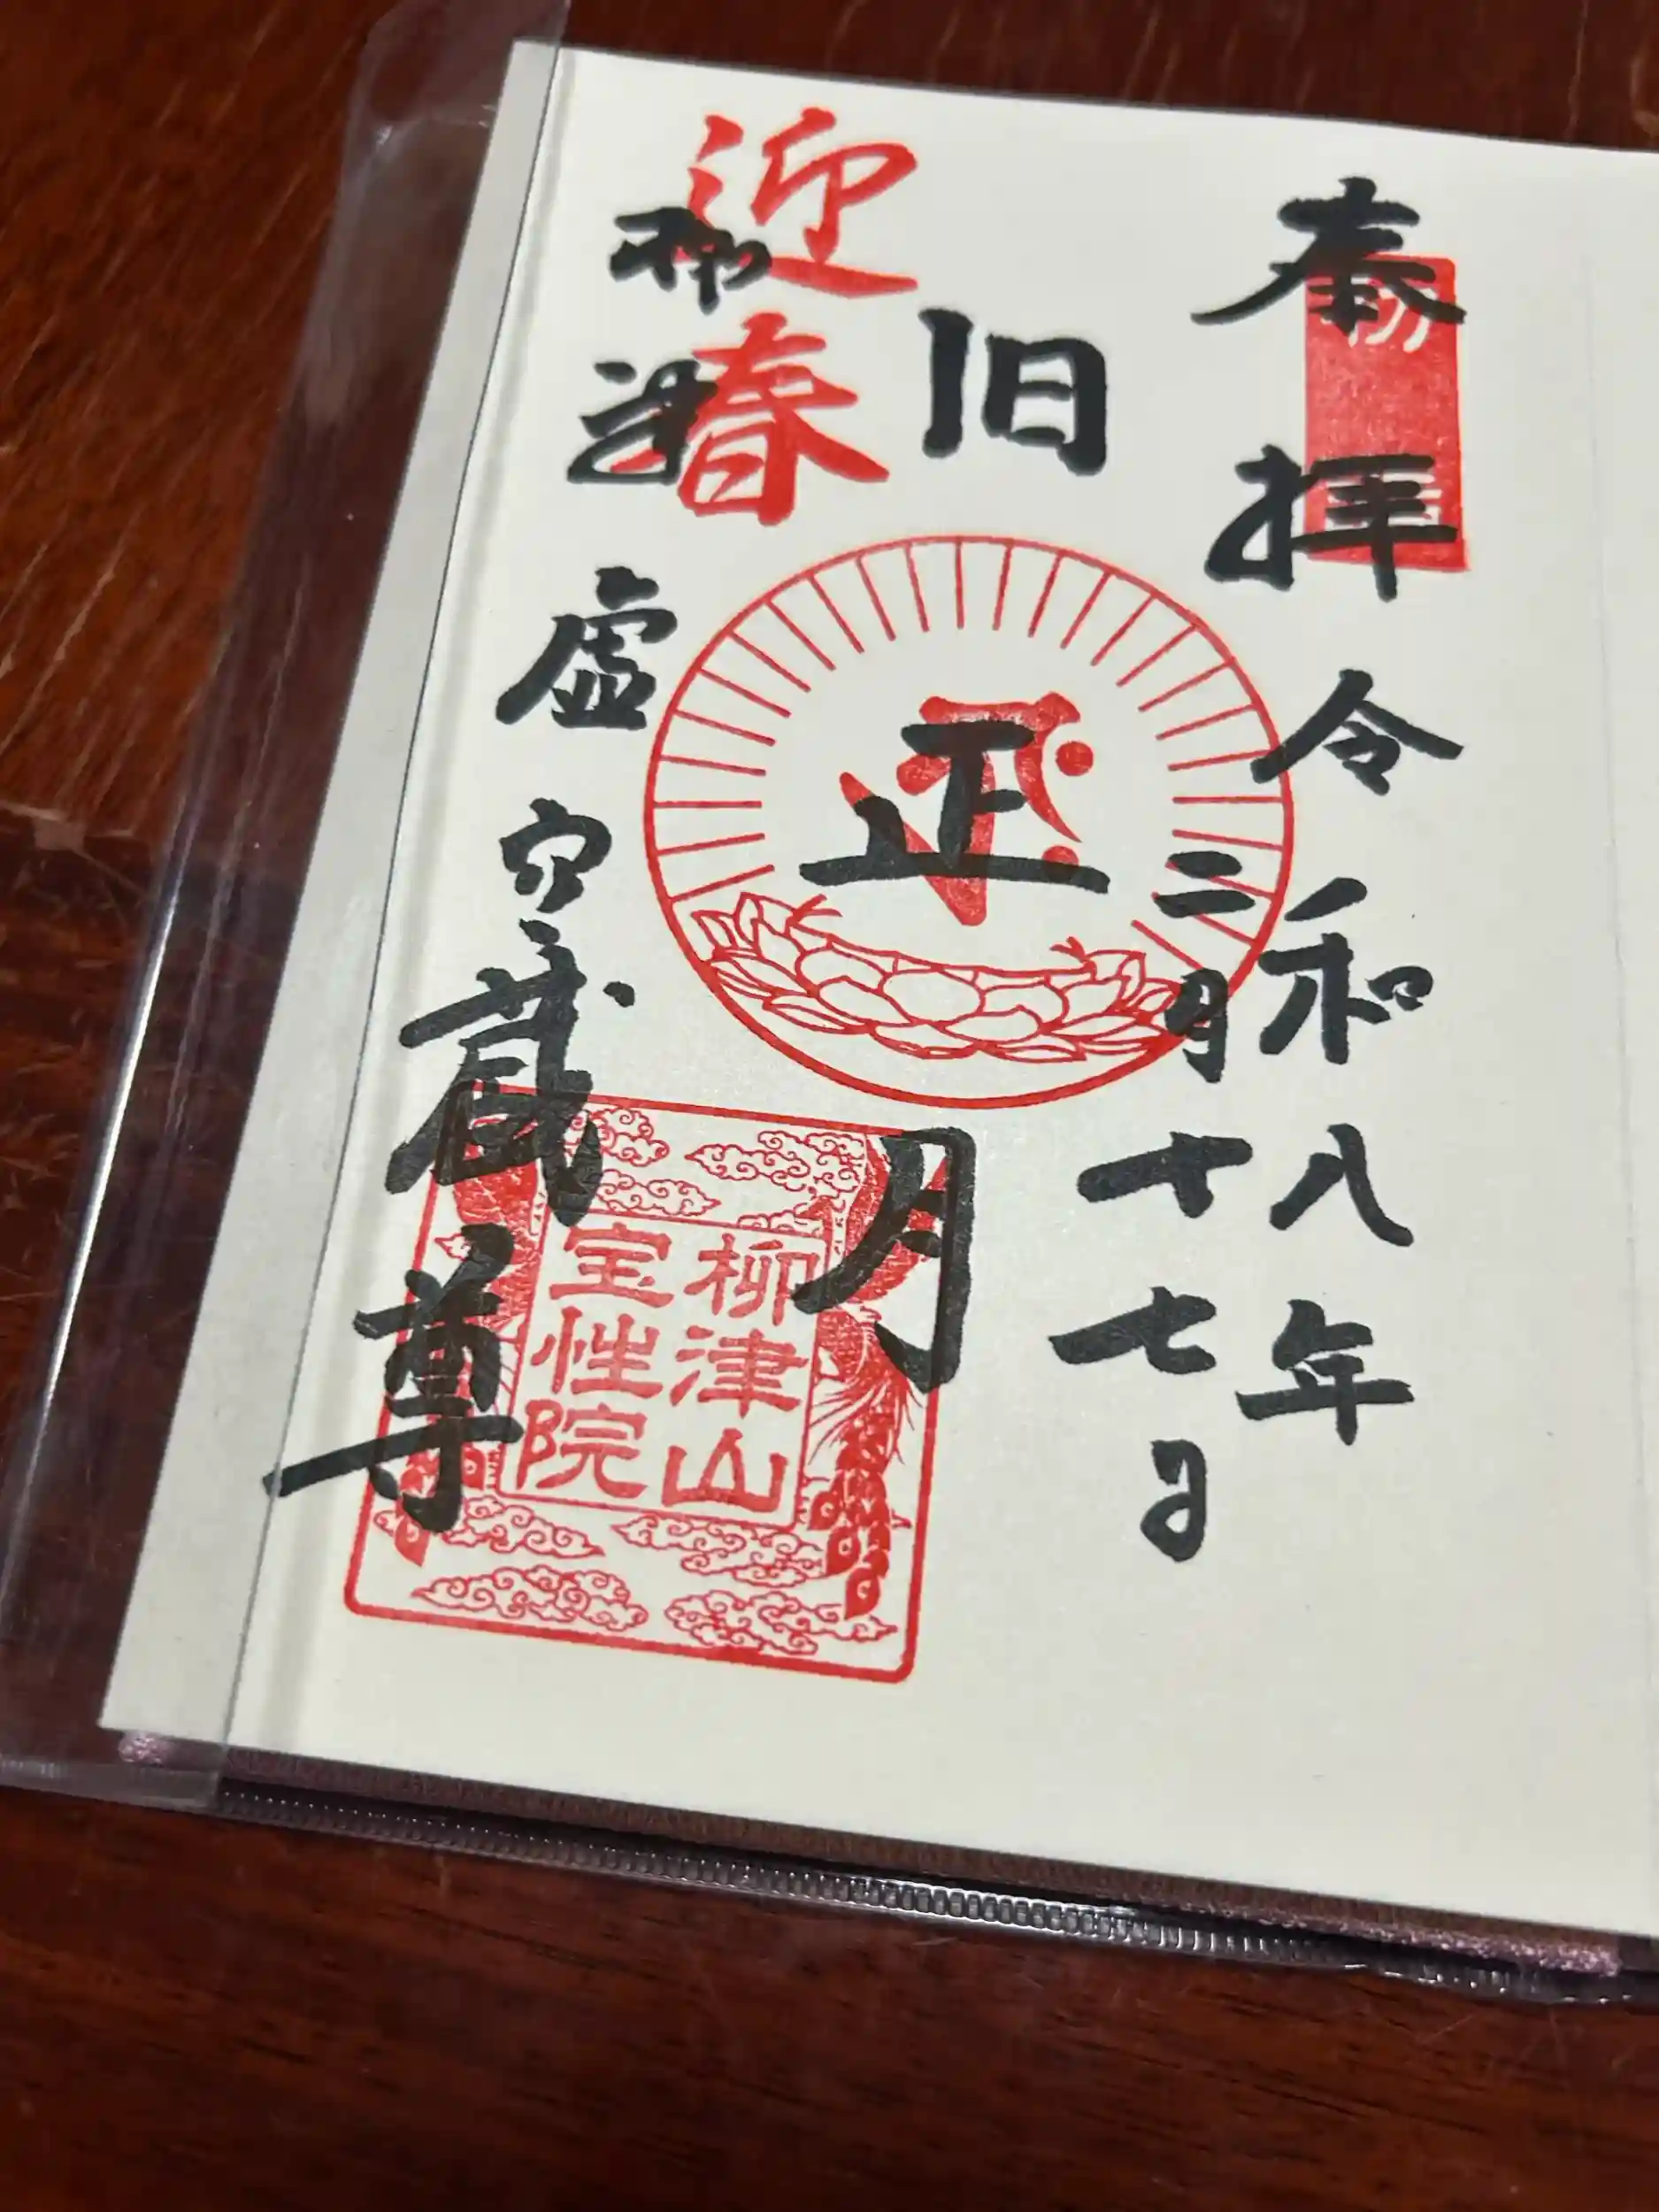 奉拝
令和八年
二月十七日
旧正月
迎春
柳津
虚空蔵尊
柳津山
宝性院